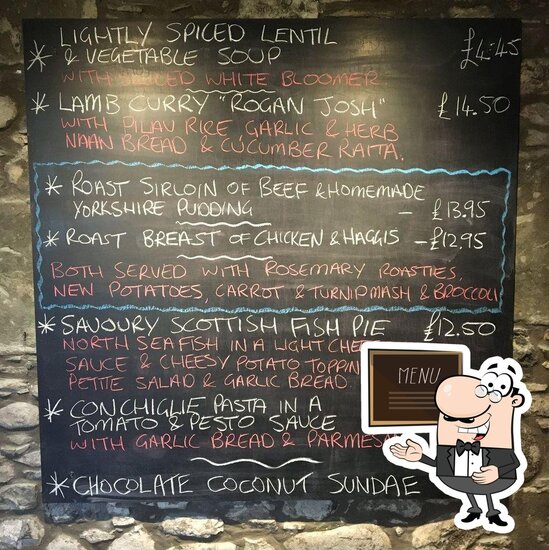 * LIGHTLY SPICED LENTIL
& VEGETABLE SOUP £4.45
WITH SLICED WHITE BLOOMER
* LAMB CURRY "ROGAN JOSH" £14.50
WITH PILAU RICE, GARLIC & HERB
NAAN BREAD & CUCUMBER RAITA.
* ROAST SIRLOIN OF BEEF & HOMEMADE
YORKSHIRE PUDDING - £13.95
* ROAST BREAST OF CHICKEN & HAGGIS - £12.95
BOTH SERVED WITH ROSEMARY ROASTIES,
NEW POTATOES, CARROT & TURNIP MASH & BROCCOLI
* SAVOURY SCOTTISH FISH PIE £12.50
NORTH SEA FISH IN A LIGHT
SAUCE & CHEESY POTATO
PETITE SALAD & GARLIC BREAD
* CONCHIGLIE PASTA IN A
TOMATO & PESTO SAUCE
WITH GARLIC BREAD &
* CHOCOLATE COCONUT SUNDAE
MENU